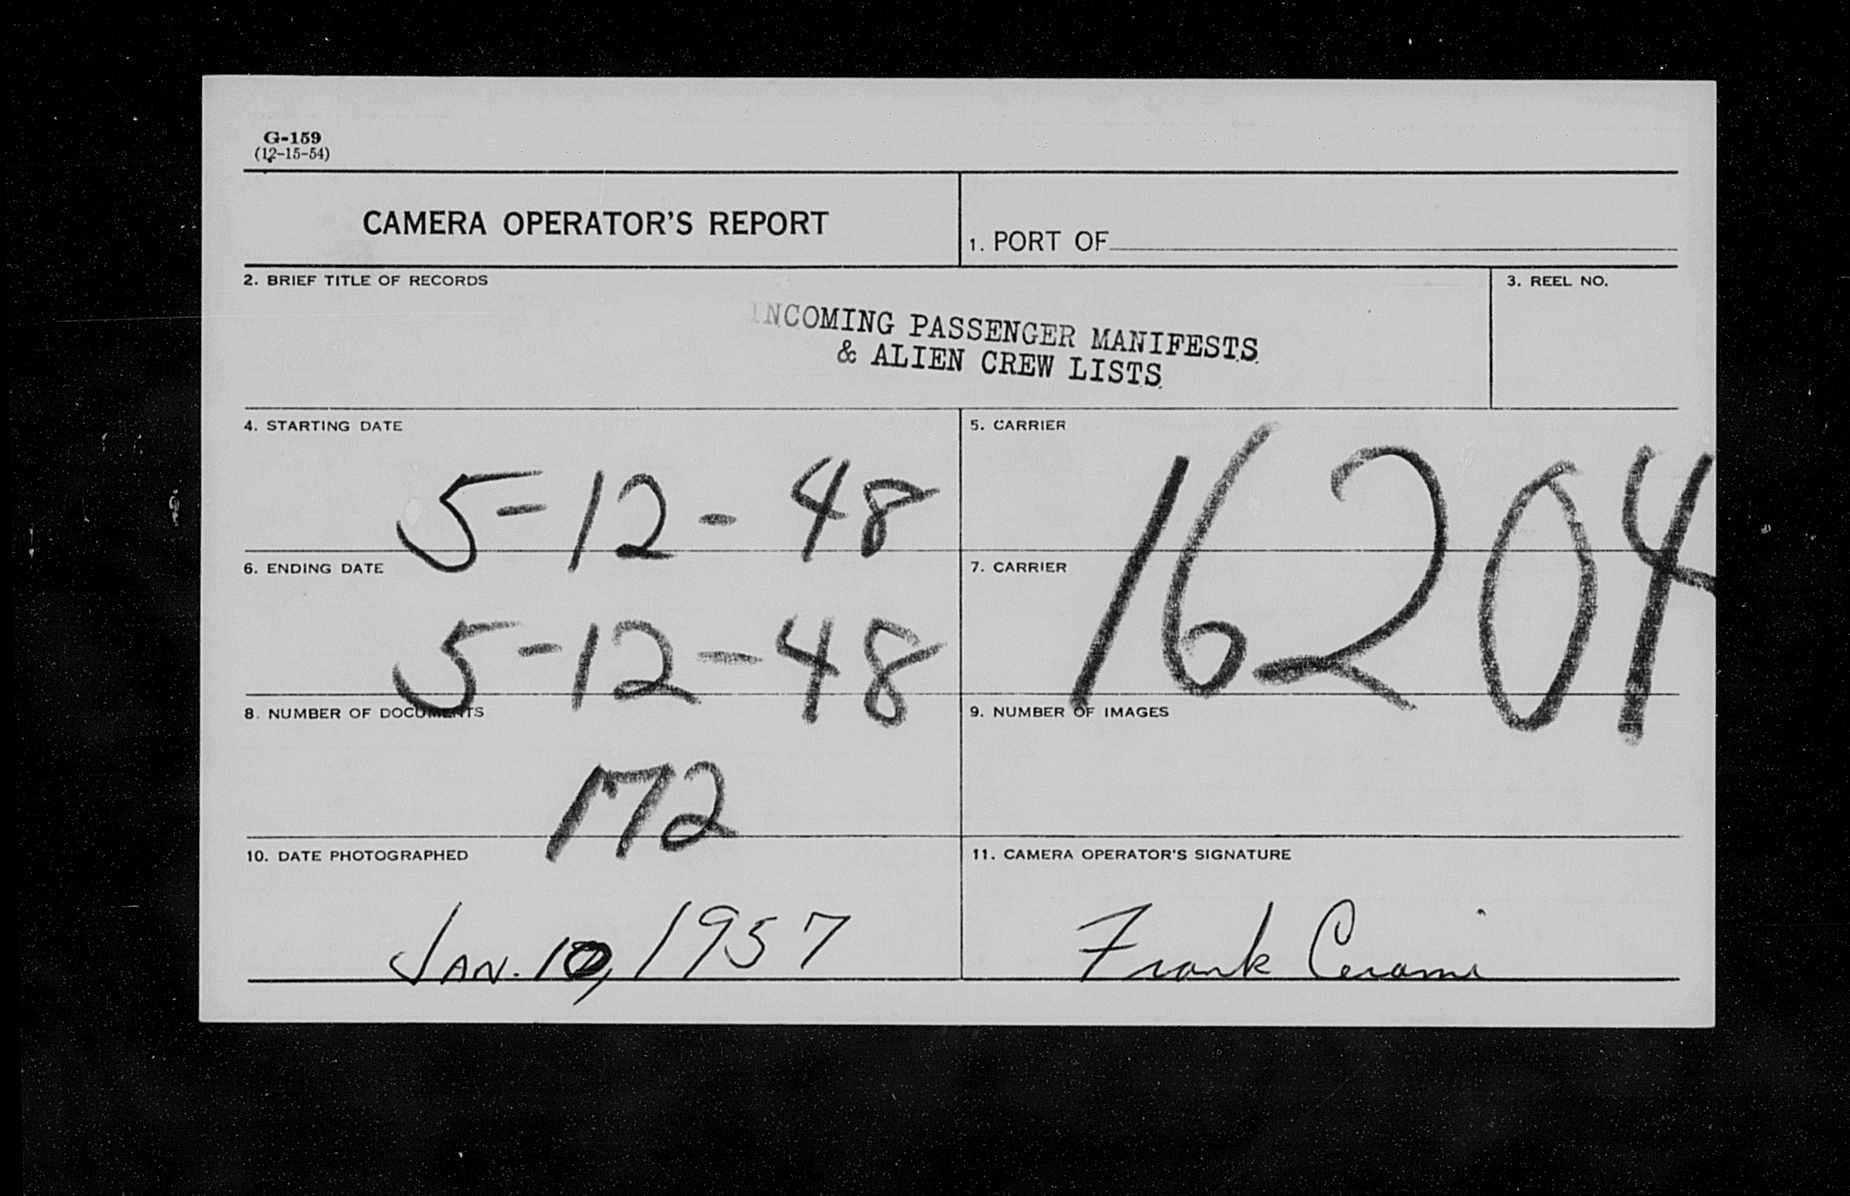 G-159
(12-15-54)
CAMERA OPERATOR'S REPORT
1. PORT OF
2. BRIEF TITLE OF RECORDS
3. REEL NO.
INCOMING PASSENGER MANIFESTS
& ALIEN CREW LISTS
4. STARTING DATE
5-12-48
5. CARRIER
16204
6. ENDING DATE
5-12-48
7. CARRIER
8. NUMBER OF DOCUMENTS
172
9. NUMBER OF IMAGES
10. DATE PHOTOGRAPHED
JAN. 10, 1957
11. CAMERA OPERATOR'S SIGNATURE
Frank Cerami